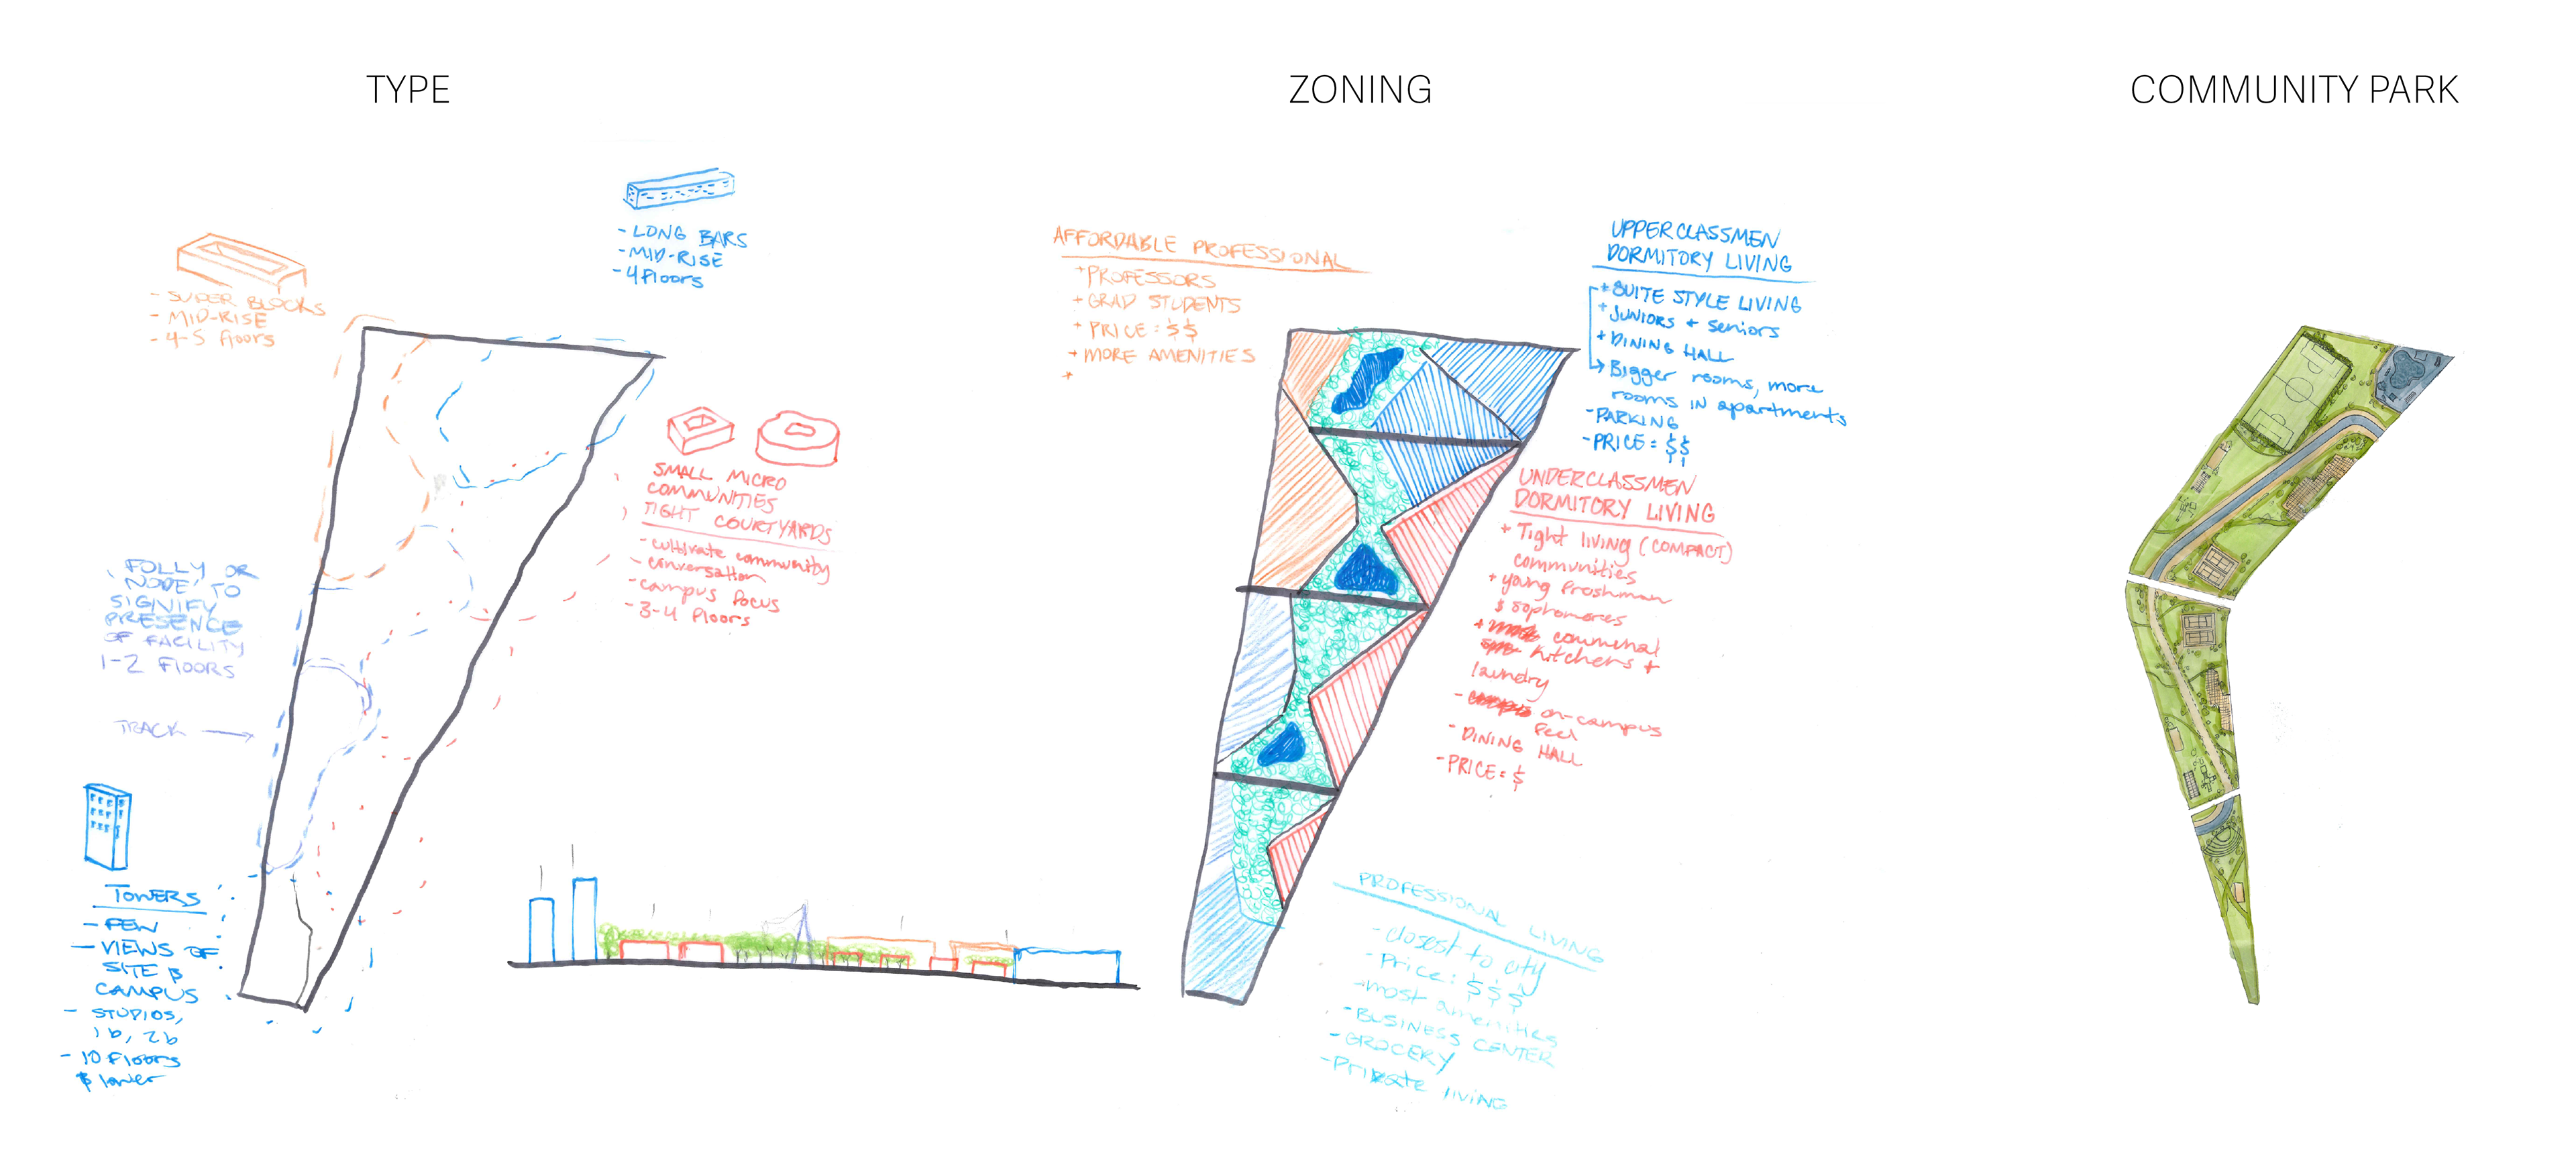 TYPE
ZONING
COMMUNITY PARK
- LONG BARS
- MID-RISE
- 4 floors
- SUPER BLOCKS
- MID-RISE
- 4-5 floors
SMALL MICRO
COMMUNITIES
TIGHT COURTYARDS
- cultivate community
- conversation
- campus focus
- 3-4 floors
FOLLY OR
"NODE" TO
SIGNIFY
PRESENCE
OF FACILITY
1-2 FLOORS
TRACK
TOWERS
- FEW
- VIEWS OF
SITE &
CAMPUS
- STUDIOS,
1b, 2b
- 10 floors
& lower
AFFORDABLE PROFESSIONAL
+ PROFESSORS
+ GRAD STUDENTS
+ PRICE: $$
+ MORE AMENITIES
*
UPPERCLASSMEN
DORMITORY LIVING
+ SUITE STYLE LIVING
+ JUNIORS + seniors
+ DINING HALL
Bigger rooms, more
rooms in apartments
- PARKING
- PRICE = $$
UNDERCLASSMEN
DORMITORY LIVING
+ Tight living (COMPACT)
communities
+ young freshman
& sophomores
+ communal
kitchens +
laundry
- on-campus
feel
- DINING HALL
- PRICE = $
PROFESSIONAL LIVING
- closest to city
- Price: $$$
- most amenities
- BUSINESS CENTER
- GROCERY
- Private living